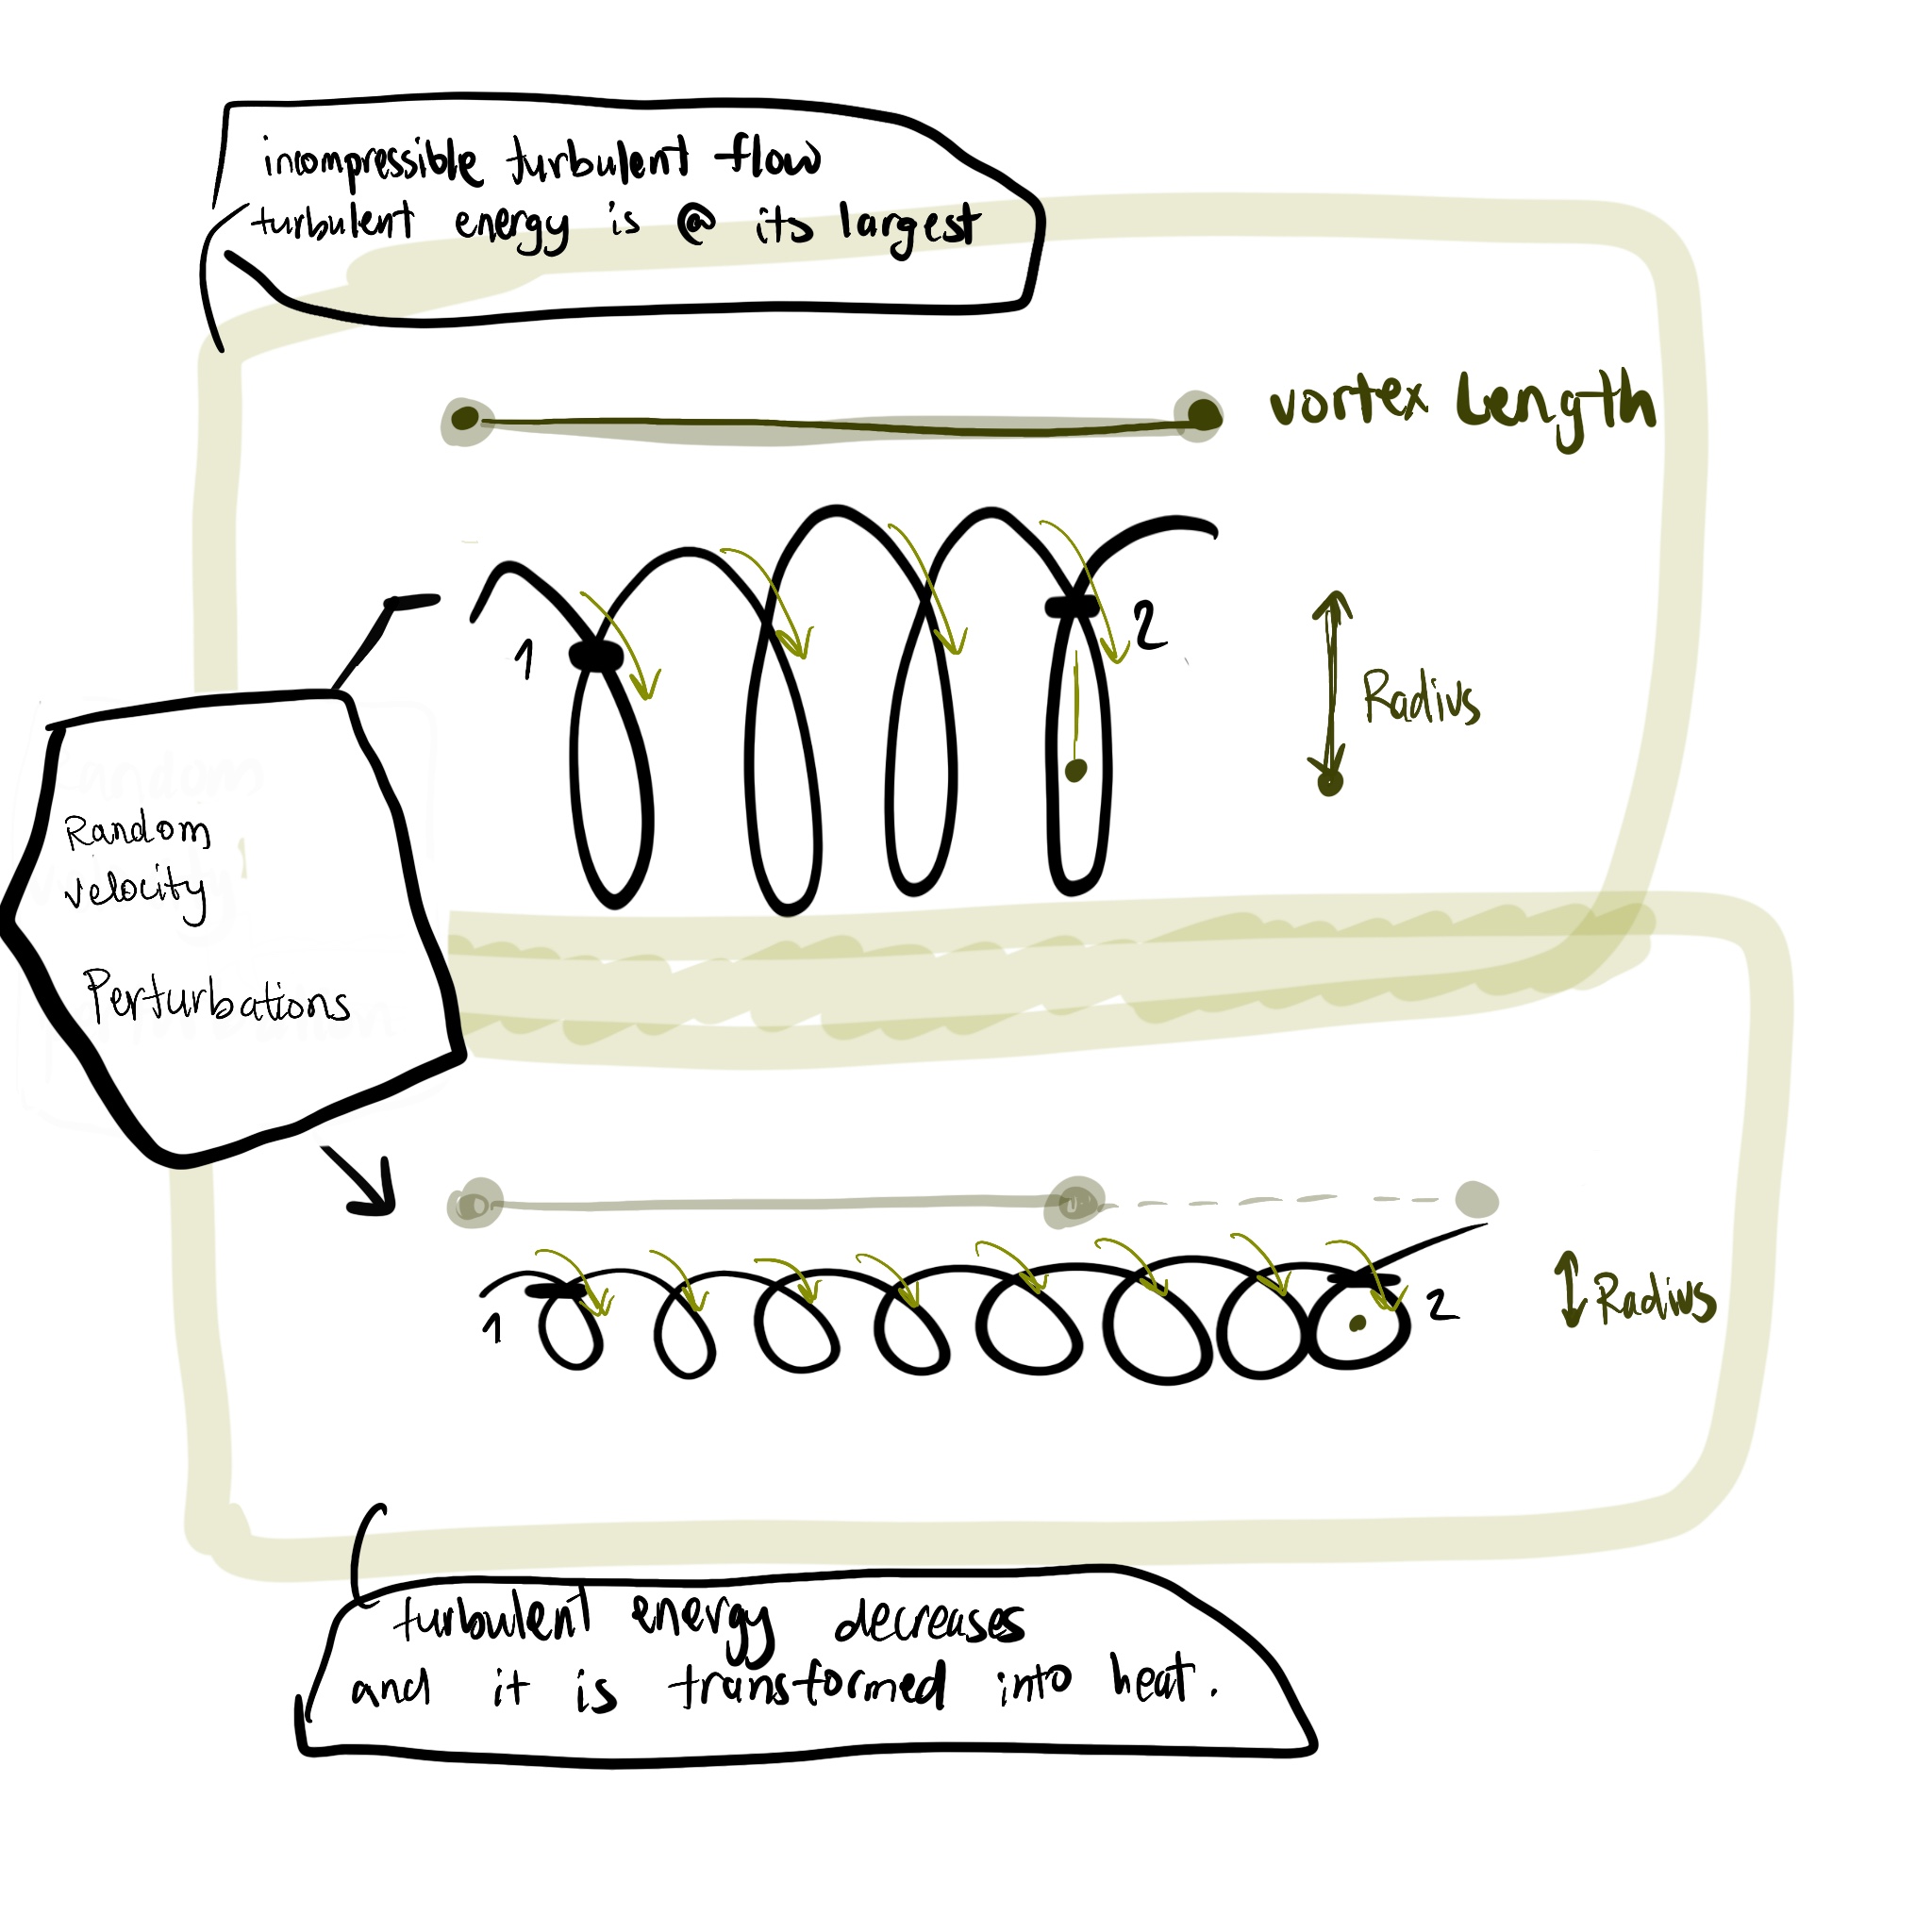 incompressible turbulent flow
turbulent energy is @ its largest
vortex Length
1
2
Radius
Random
velocity
Perturbations
1
2
Radius
turbulent energy decreases
and it is transformed into heat.